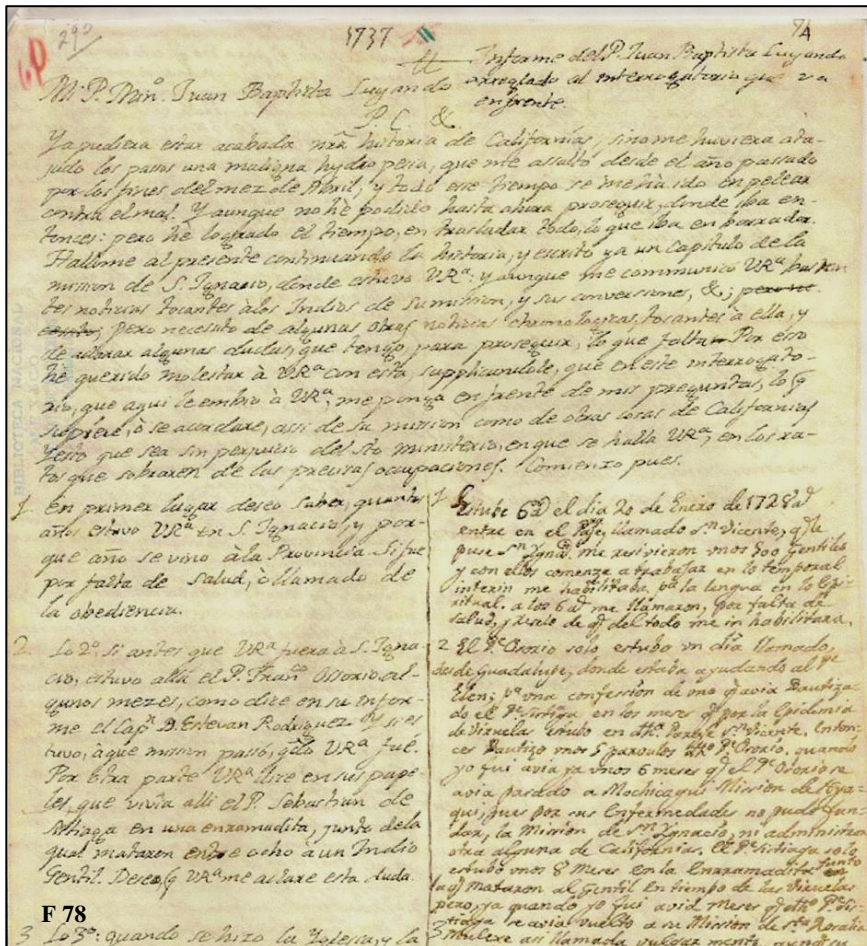 290
1737
74
Informe del P. Juan Baptista Luyando
arreglado al interrogatorio que va
enfrente.
Mi P. Minº. Juan Baptista Luyando
P. C. &
Ya pudiera estar acabada nrã historia de Californias, sino me huviera ata-
jado los passos una maligna hydropesia, que me assaltò desde el año passado
por los fines del mez de Abril, y todo esse tiempo se me hà ido en pelear
contra el mal. Y aunque no hè podido hasta ahora proseguir, donde iba en-
tonces: pero hè logrado el tiempo, en trasladar todo, lo que iba en borrador.
Hallome al presente continuando la historia, y escrito ya un capitulo de la
mission de S. Ignacio, donde estuvo VRª: y aunque me communicò VRª bastan
tes noticias tocantes à los Indios de su mission, y sus conversiones, &;
pero necesito de algunas otras noticias chronologicas, tocantes à ella, y
de aclarar algunas dudas, que tengo para proseguir, lo que falta. Por esso
he querido molestar à VRª con esta, supplicandole, que en este interrogato-
rio, que aqui le embio à VRª, me ponga en frente de mis preguntas, lo q̃
supiere, ò se acordare, assi de su mission como de otras cosas de Californias
Pero que sea sin perjuicio del sto ministerio, en que se halla VRª, en los ra-
tos que sobraren de las precisas ocupaciones. Comienzo pues.
1. En primer lugar deseo saber, quantos
años estuvo VRª en S. Ignacio, y por-
que año se vino à la Provincia. Si fue
por falta de salud, ò llamado de
la obediencia.
2. Lo 2º. Si antes que VRª fuera à S. Igna-
cio, estuvo allà el P. Franº Ossorio al-
gunos mezes, como dice en su infor-
me el Capⁿ D. Estevan Rodriguez. Y si es-
tuvo, à que mission passò, qdo VRª fuè.
Por otra parte VRª dice en sus pape-
les, que vivia alli el P. Sebastian de
Sistiaga en una enramadita, junto de la
qual mataron entre ocho à un Indio
Gentil. Deseo, q̃ VRª me aclare esta duda.
3 Lo 3º: quando se hizo la Yglesia, y la
1 Estube 6 aˢ el dia 20 de Enero de 1728 aˢ
entre en el Paje, llamado Sⁿ Vicente, q̃ le
puse Sⁿ Ignº. me resivieron unos 500 gentiles
y con ellos comenze a trabajar en lo temporal
interin me habilitaba, pª la lengua en lo Espi-
ritual. a los 6 aˢ me llamaron, por falta de
salud, y reselo de q̃ del todo me in habilitara.
2 El Pᵉ Osorio solo estubo un dia llamado,
desde Guadalupe, donde estaba ayudando al Pᵉ
Elen; pª una confession de uno q̃ avia Bautiza
do el Pᵉ Sistiaga en los meses q̃ por la Epidemia
de Viruelas estubo en dthº Paraje Sⁿ Vicente. Enton-
ces Bautizo unos 5 parvulos dthº Pᵉ Osorio, quando
yo fui avia ya unos 6 meses q̃ el Pᵉ Osorio se
avia pasado a Mochicagui Mission de
qui, pues por sus Enfermedades no pudo fun-
dar, la Mission de Sⁿ Ignacio, ni administrar
otra alguna de Californias. el Pᵉ Sistiaga solo
estubo unos 8 Meses en la Enrramadita junto
la q̃ Mataron al Gentil En tiempo de las Viruelas
pero, ya quando yo fui avia meses q̃ dthº Pᵉ Sis-
tiaga se avia vuelto a su Mission de Stª Rosalia
3 Mulexe asi llamada vulgar mente
F 78